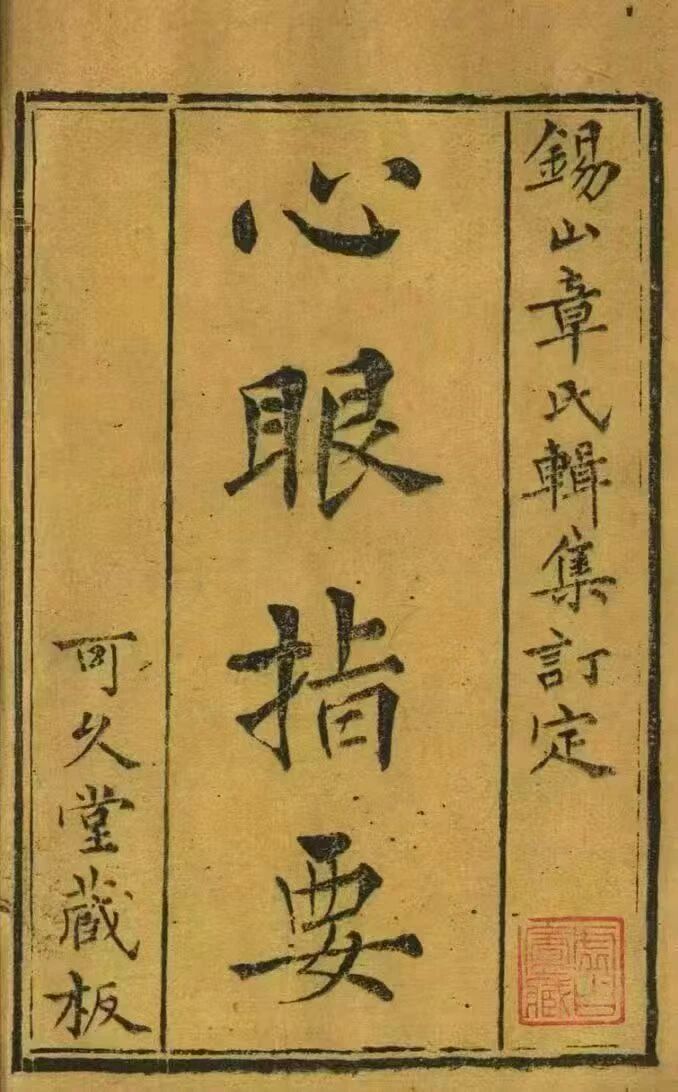 錫山章氏輯集訂定
心眼指要
可久堂藏板